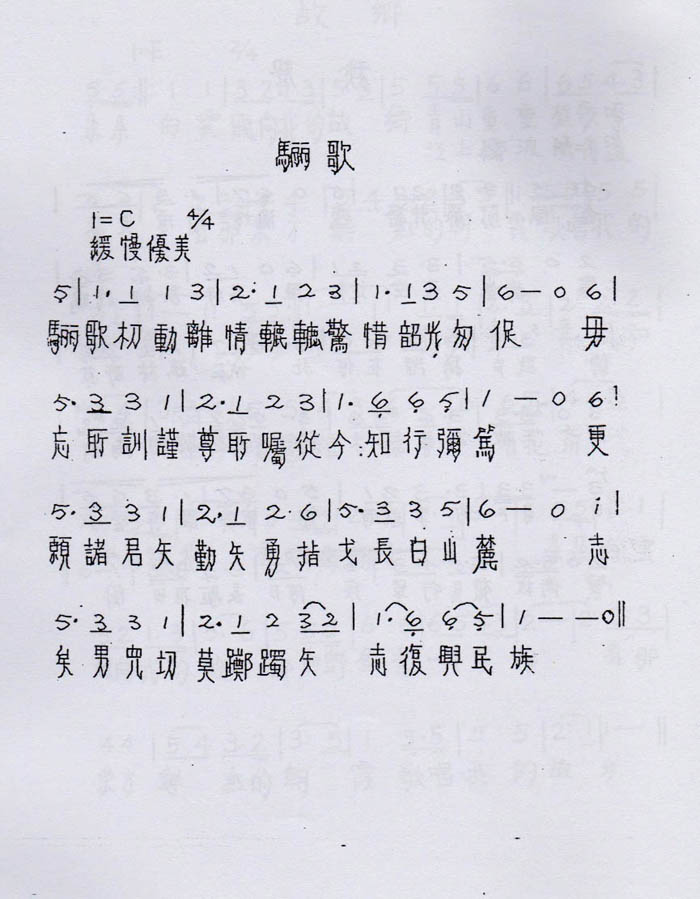 驪歌
1=C 4/4
緩慢優美
5|1·1 1 3|2·1 2 3|1·1 3 5|6－0 6|
驪歌初動離情轆轆驚惜韶光匆促 毋
5·3 3 1|2·1 2 3|1·6 6 5|1－0 6|
忘所訓謹尊所囑從今知行彌篤 更
5·3 3 1|2·1 2 6|5·3 3 5|6－0 i|
願諸君矢勤矢勇指戈長白山麓 志
5·3 3 1|2·1 2 3 2|1·6 6 5|1－－0‖
矣男兒切莫躑躅矢 志復興民族